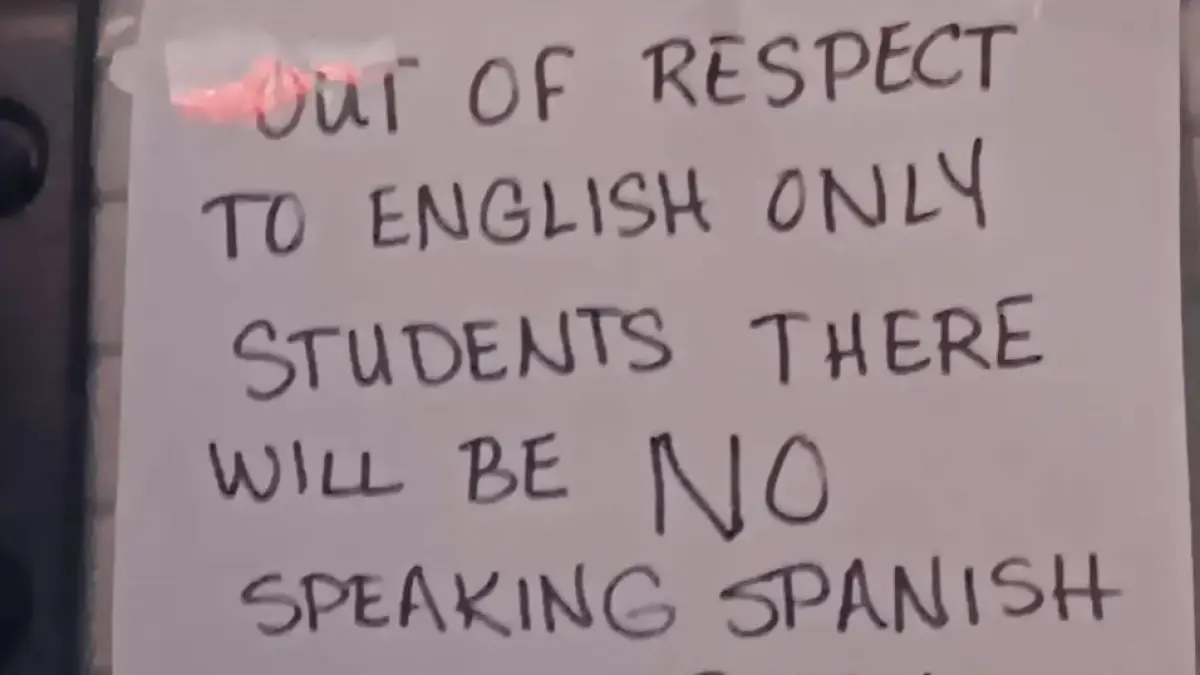 OUT OF RESPECT
TO ENGLISH ONLY
STUDENTS THERE
WILL BE NO
SPEAKING SPANISH